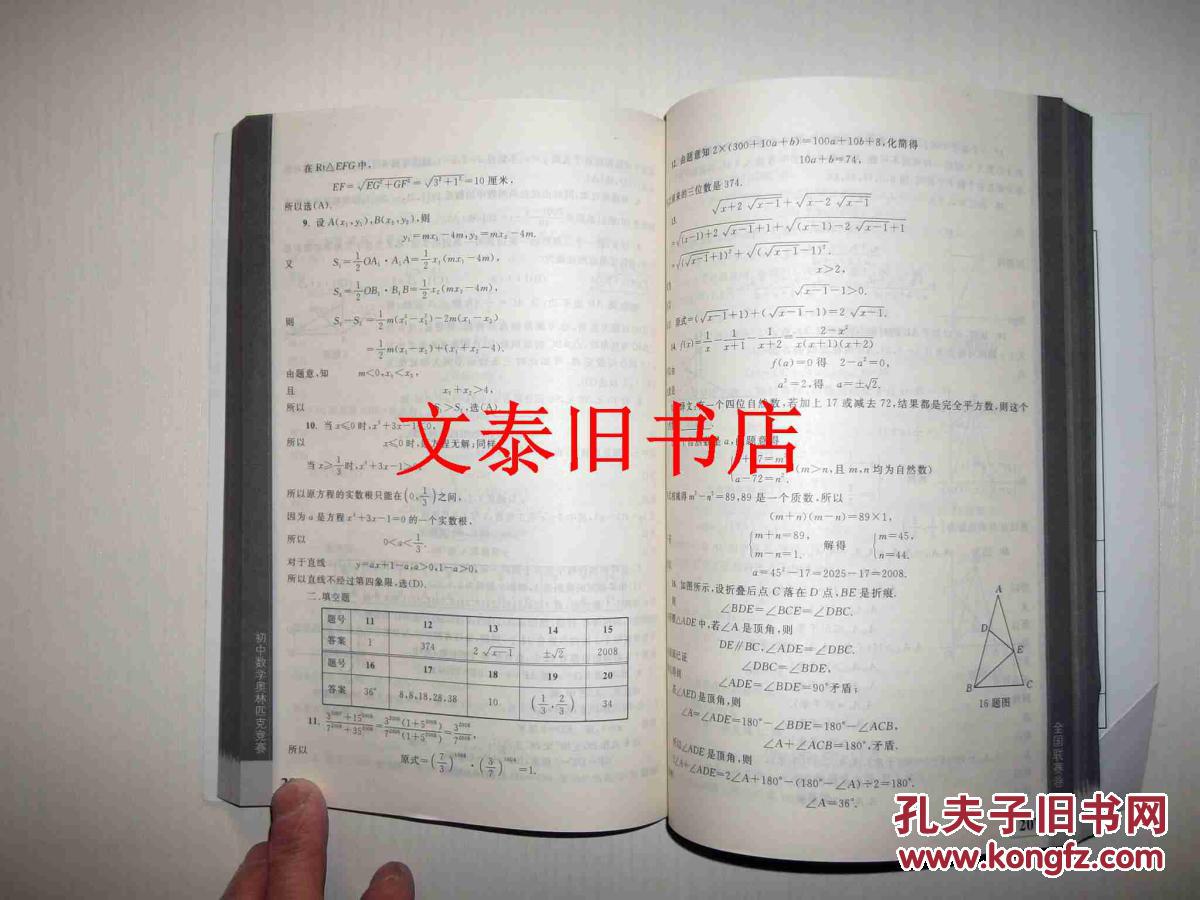 在 Rt△EFG 中,
EF=√(EG²+GF²)=√(3²+1²)=10 厘米,
所以选(A).
9. 设 A(x₁,y₁),B(x₂,y₂),则
y₁=mx₁-4m,y₂=mx₂-4m.
又 S₁=1/2 OA₁·A₁A=1/2 x₁(mx₁-4m),
S₂=1/2 OB₁·B₁B=1/2 x₂(mx₂-4m),
则 S₁-S₂=1/2 m(x₁²-x₂²)-2m(x₁-x₂)
=1/2 m(x₁-x₂)+(x₁+x₂-4).
由题意,知 m<0,x₁<x₂,
且 x₁+x₂>4,
所以 S₁>S₂,选(A).
10. 当 x≤0 时,x³+3x-1<0,
所以 x≤0 时,
程无解;同样
当 x≥1/3 时,x³+3x-1>0
所以原方程的实数根只能在(0,1/3)之间,
因为 a 是方程 x³+3x-1=0 的一个实数根,
所以 0<a<1/3.
对于直线 y=ax+1-a,a>0,1-a>0,
所以直线不经过第四象限,选(D).
二、填空题
题号 11 12 13 14 15
答案 1 374 2√(x-1) ±√2 2008
题号 16 17 18 19 20
答案 36° 8,8,18,28,38 10 (1/3,2/3) 34
11.
所以 原式=
=1.
初中数学奥林匹克竞赛
12. 由题意知 2×(300+10a+b)=100a+10b+8,化简得
10a+b=74,
来的三位数是 374.
13. √(x+2√(x-1))+√(x-2√(x-1))
=√((x-1)+2√(x-1)+1)+√((x-1)-2√(x-1)+1)
=√((√(x-1)+1)²)+√((√(x-1)-1)²).
x>2,
√(x-1)-1>0.
原式=(√(x-1)+1)+(√(x-1)-1)=2√(x-1).
14. f(x)=1/x-1/(x+1)-1/(x+2)=(2-x²)/(x(x+1)(x+2))
f(a)=0 得 2-a²=0,
a²=2,得 a=±√2.
一个四位自然数,若加上 17 或减去 72,结果都是完全平方数,则这个
是 a,由题意得
a-72=n². (m>n,且 m,n 均为自然数)
相减得 m²-n²=89,89 是一个质数,所以
(m+n)(m-n)=89×1,
m+n=89, m=45,
解得
m-n=1. n=44.
a=45²-17=2025-17=2008.
16. 如图所示,设折叠后点 C 落在 D 点,BE 是折痕.
则 ∠BDE=∠BCE=∠DBC.
△ADE 中,若∠A 是顶角,则
DE∥BC,∠ADE=∠DBC.
∠DBC=∠BDE,
∠ADE=∠BDE=90°矛盾;
若∠AED 是顶角,则
∠A=∠ADE=180°-∠BDE=180°-∠ACB,
∠A+∠ACB=180°,矛盾.
∠ADE 是顶角,则
∠A+∠ADE=2∠A+180°-(180°-∠A)÷2=180°.
∠A=36°.
A
D
E
B
C
16 题图
全国联赛卷
20
文泰旧书店
孔夫子旧书网
www.kongfz.com